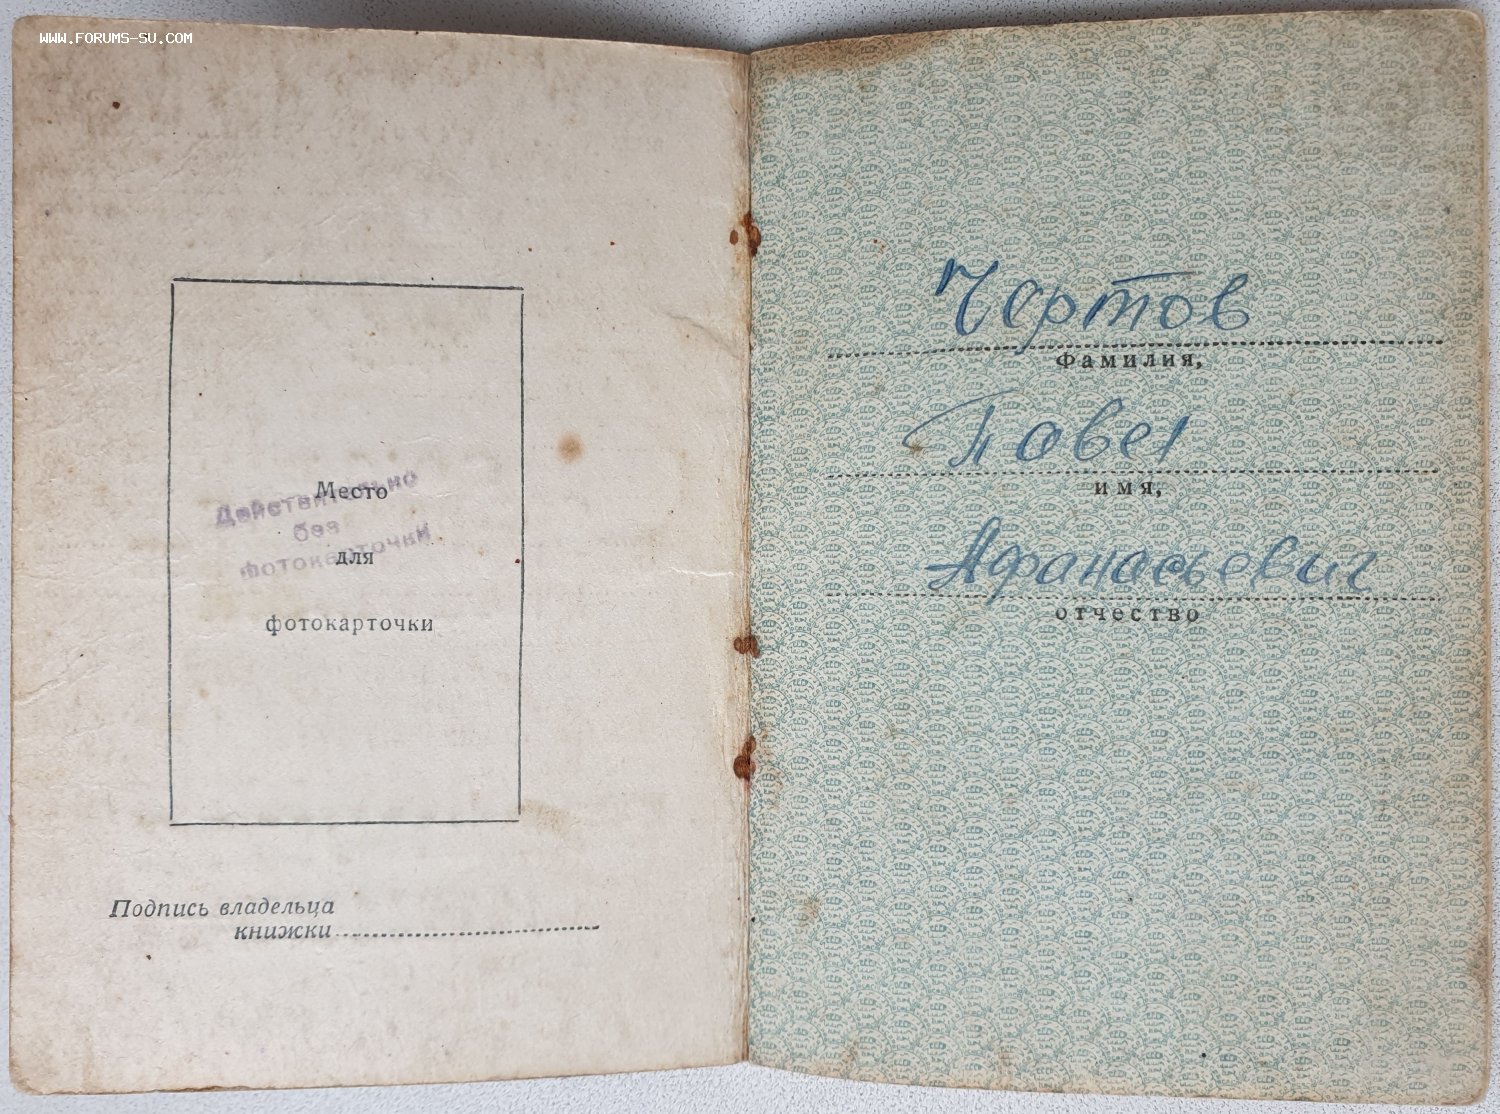 WWW.FORUMS-SU.COM
Действительно
без
фотокарточки
Место
для
фотокарточки
Подпись владельца
книжки
Чертов
Фамилия,
Павел
имя,
Афанасьевич
отчество